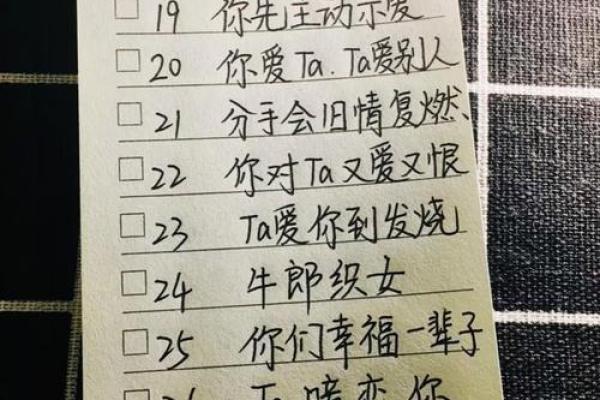 19 你先主动示爱
20 你爱Ta.Ta爱别人
21 分手会旧情复燃、
22 你对Ta又爱又恨
23 Ta爱你到发烧
24 牛郎织女
25 你们幸福一辈子
26 Ta暗恋你